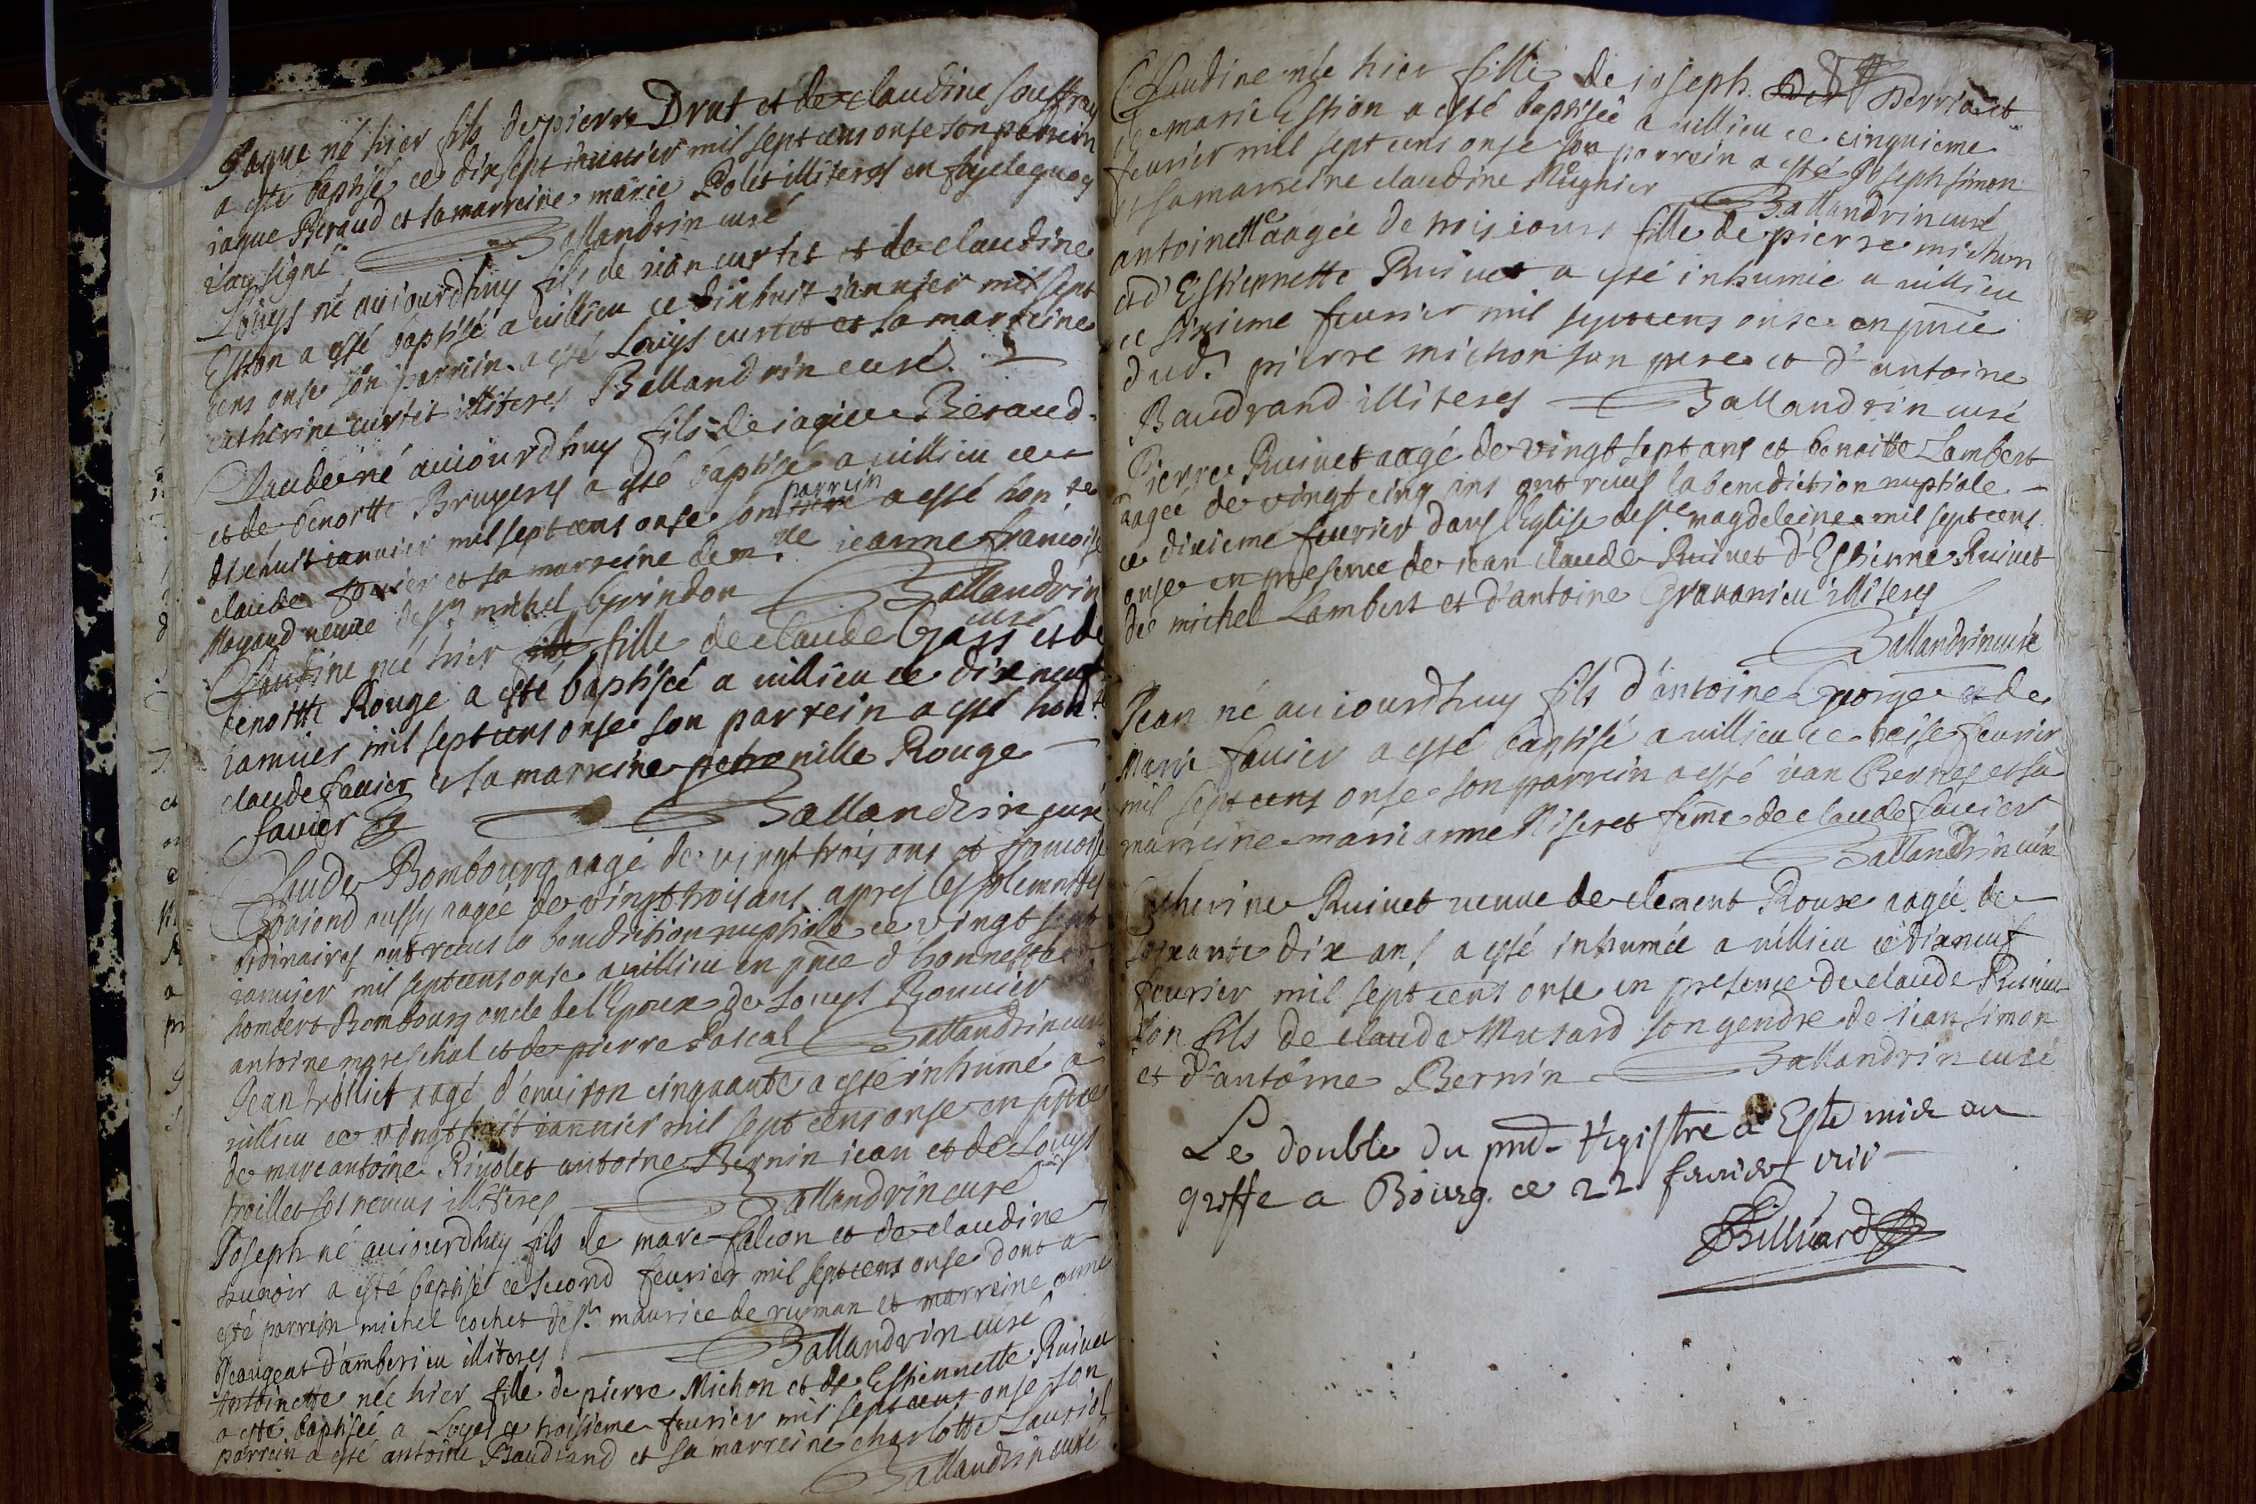 Jaque né hier fils de pierre Drut et de claudine souffray
a esté baptisé ce dixsept ianvier mil sept cens onse son parrein
iaque Beraud et sa marreine marie Rolet illiteres en foy de quoy
i'ay signé Ballandrin curé
Louys né auiourdhuy fils de curtet et de claudine
Estion a esté baptisé a uillieu ce dixhuit iannier mil sept
cens onse son parrein a esté Louys curtet et sa marreine
catherine curtet illiteres Ballandrin curé
Claude né auiourdhuy fils de iaque Beraud
et de benoitte Bruyeres a esté baptisé a uillieu ce
dixhuit iannier mil sept cens onse son parrein a esté hon.te
claude fauier et sa marreine dem.lle ieanne françoise
Mayaud veuue de s.r michel grindon Ballandrin
curé
Claudine née hier fille de claude Gass et de
benoitte Rouge a esté baptisée a uillieu ce dix neuf
iannier mil sept cens onse son parrein a esté hon.te
claude fauier et sa marreine petronille Rouge
fauier Ballandrin curé
Claude Bombourg aagé de vingt trois ans et francoise
aussy aagée de vingt trois ans apres les solemnites
ordinaires ont receus la benediction nuptiale ce vingt sept
iannier mil sept cens onse a uillieu en pnce d'honneste
hombert Bombourg oncle de l'Epoux de Louys Bouuier
antoine mareschal et de pierre Pascal Ballandrin curé
Jean trolliet aagé d'enuiron cinquante a esté inhumé a
uillieu ce vingt huit iannier mil sept cens onse en pnce
de marc antoine Riuolet antoine Bernin iean et de Louys
trolliet ses neueus illiteres Ballandrin curé
Joseph né auiourdhuy fils de marc falcon et de claudine
a esté baptisé ce second feurier mil sept cens onse dont a
esté parrein michel cochet de st. maurice de reyman et marreine anne
d'amberieu illiteres Ballandrin curé
Antoinette née hier fille de pierre Michon et de Estiennette Ruiuet
a esté baptisée a Loyes ce troisieme feurier mil sept cens onse son
parrein a esté antoine Baudrand et sa marreine charlotte Lauriel
Ballandrin curé
Claudine née hier fille de ioseph Berrier et
de marie Estion a esté baptisée a uillieu ce cinquieme
feurier mil sept cens onse son parrein a esté Joseph simon
et sa marreine claudine Mugnier Ballandrin curé
antoinette aagée de trois iours fille de pierre michon
et d'Estiennette Ruiuet a esté inhumée a uillieu
ce sixieme feurier mil sept cens onse en pnce
dud. pierre michon son pere et d'antoine
Baudrand illiteres Ballandrin curé
Pierre Ruiuet aagé de vingt sept ans et benoitte Lambert
aagée de vingt cinq ans ont receus la benediction nuptiale
ce dixieme feurier dans l'Eglise de ste. magdeleine mil sept cens
onse en presence de iean claude Ruiuet d'Estienne Ruiuet
de michel Lambert et d'antoine Grauanieu illiteres
Ballandrin curé
Jean né auiourdhuy fils d'antoine George et de
Marie fauier a esté baptisé a uillieu ce treise feurier
mil sept cens onse son parrein a esté iean Bernes et sa
marreine marianne Miseret feme de claude fauier
Ballandrin curé
Catherine Ruiuet veuue de clement Roux aagée de
soixante dix ans a esté inhumée a uillieu ce dixneuf
feurier mil sept cens onse en presence de claude Ruiuet
son fils de claude Mutard son gendre de iean simon
et d'antoine Bernin Ballandrin curé
Le double du pnt Registre a Esté mis au
greffe a Bourg ce 22 feurier
Billuard